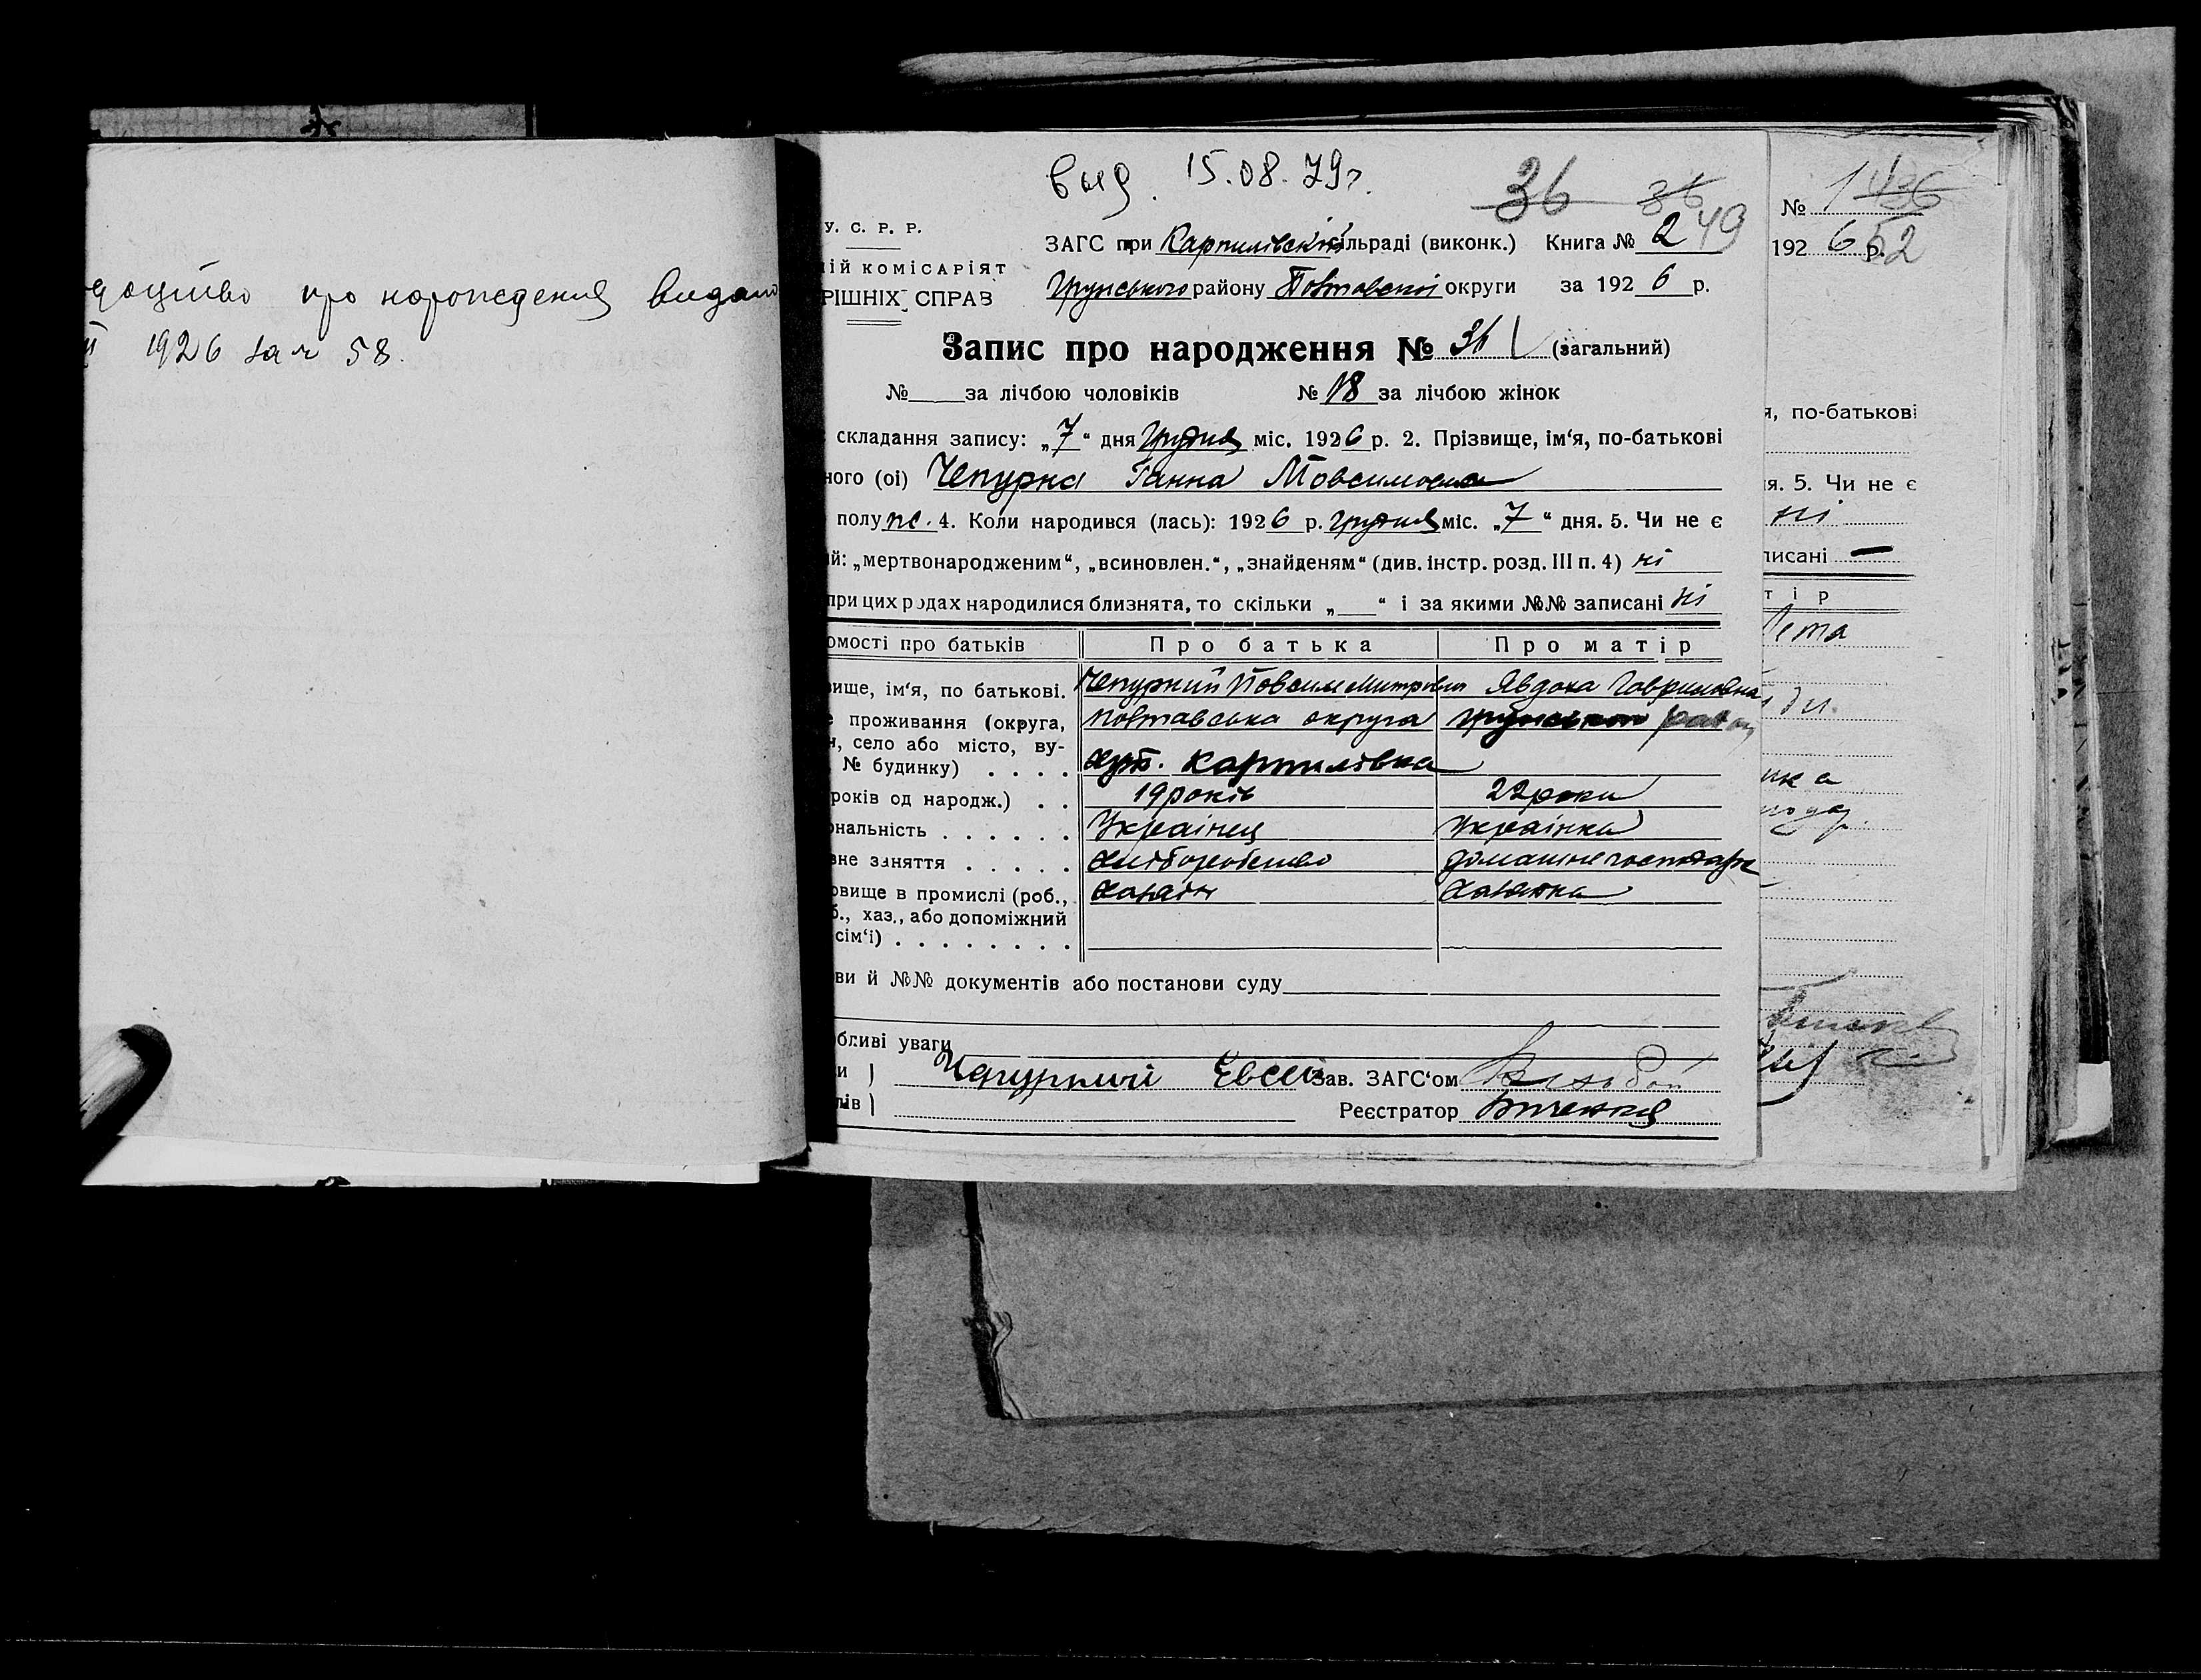 про народження видано
1926 за № 58.
выд. 15.08.79г.
36 36
49
У. С. Р. Р.
ЗАГС при Карпилівській сільраді (виконк.) Книга № 2
ІЙ КОМІСАРІЯТ
РІШНІХ СПРАВ
Грунського району Полтавської округи за 1926 р.
Запис про народження № 36 (загальний)
№ за лічбою чоловіків № 18 за лічбою жінок
складання запису: „7“ дня Грудня міс. 1926 р. 2. Прізвище, ім‘я, по-батькові
ного (ої) Чепурна Ганна Йовсимовна
полу ж. 4. Коли народився (лась): 1926 р. Грудня міс. „7“ дня. 5. Чи не є
й: „мертвонародженим“, „всиновлен.“, „знайденям“ (див. інстр. розд. III п. 4) ні
при цих родах народилися близнята, то скільки „ “ і за якими №№ записані ні
омості про батьків Про батька Про матір
вище, ім‘я, по батькові. Чепурний Йовсим Митрович Явдоха Говриловна
е проживання (округа, Полтавська округа Грунського район
н, село або місто, ву-
№ будинку) . . . . хут. Карпилівка
років од народж.) . . 19 років 22 роки
ональність . . . . . . Українец Українка
вне заняття . . . . . Хліборобство домашнє господарс
овище в промислі (роб., Хазяїн Хазяйка
б., хаз., або допоміжний
сім‘ї) . . . . . . . .
ви й №№ документів або постанови суду
бливі уваги
и ) Чапурний Евсей Зав. ЗАГС‘ом
лів ) Реєстратор
№ 1 436
1926 р. 52
я, по-батькові
я. 5. Чи не є
ні
писані —
т і р